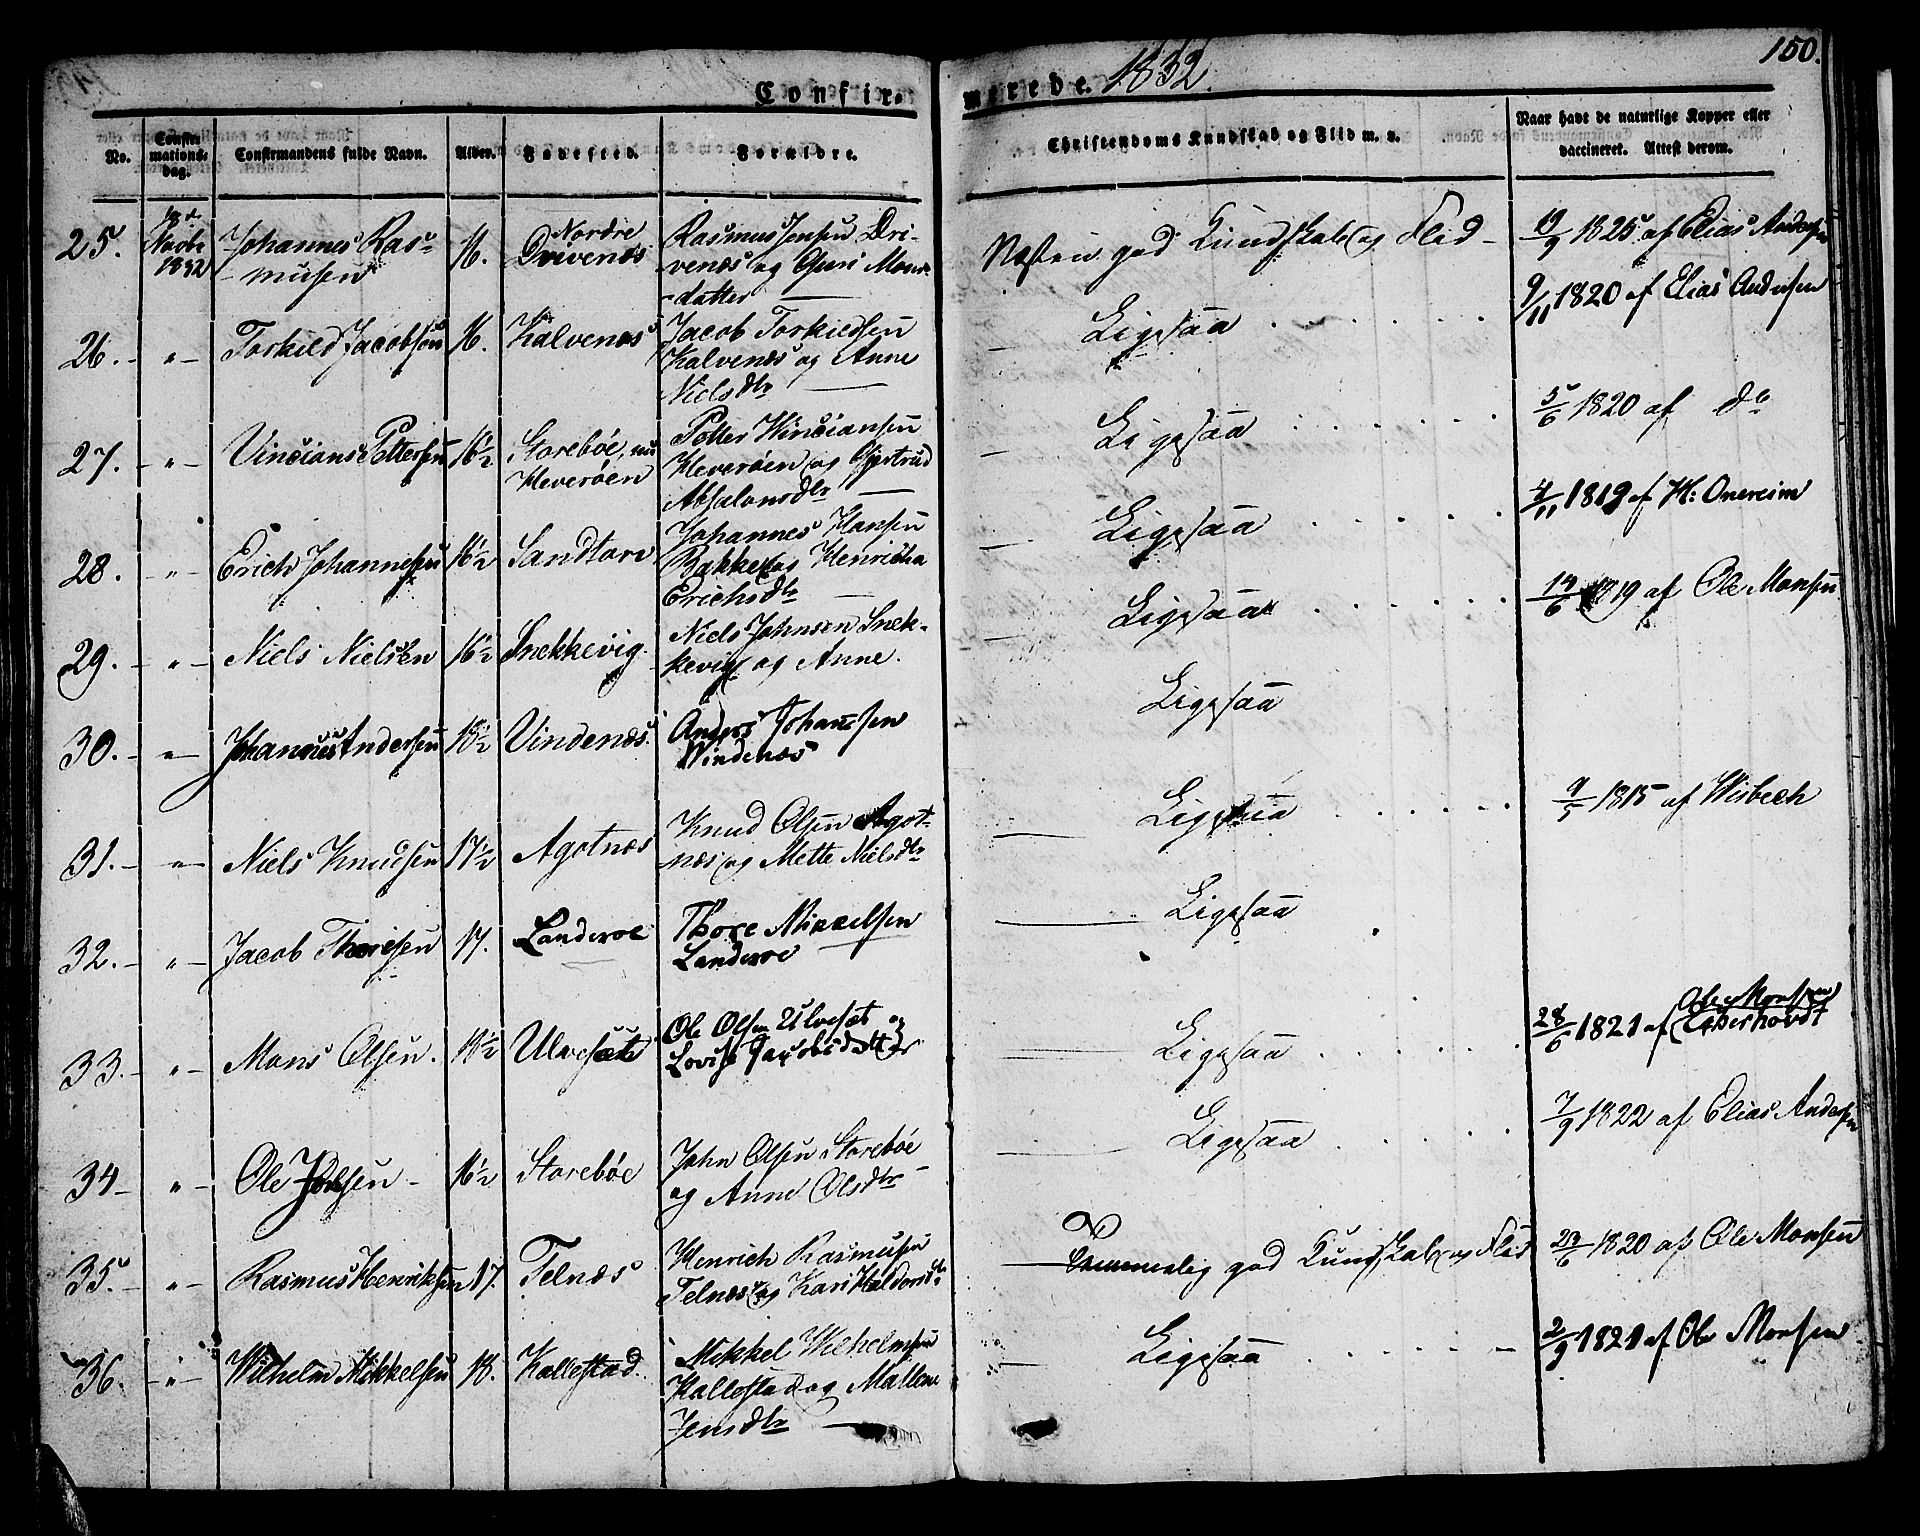 150.
Confirmerede. 1832.
No.
Confirmationsdag.
Confirmandens fulde Navn.
Alder.
Fødested.
Forældre.
Christendoms Kundskab og Flid m. v.
Naar havt de naturlige Kopper eller
vaccineret. Attest derom.
25.
18de
1832
Johannes Ras-
musen
16.
Nordre
Drivenæs
Rasmus Jensen Dri-
venæs og Guri Mons-
datter
Næsten god Kundskab og Flid
19/9 1825 af Elias Andersen
26. - " -
Torkild Jacobsen
16.
Kalvenæs
Jacob Torkildsen
Kalvenæs og Anne
Nielsdtr
Ligesaa
9/11 1820 af Elias Andersen
27. - " -
Vincians Pettersen
16½
Storebøe, nu
Heverøen
Petter Vinciansen
Heverøen og Gjertrud
Absalonsdtr
Ligesaa
5/6 1820 af do
28. - " -
Erich Johannesen
16½
Sandtorv
Johannes Hansen
Bakke og Henricha
Erichsdtr
Ligesaa
4/11 1819 af H: Onereim
29. - " -
Niels Nielsen
16½
Snekkevig.
Niels Johnsen Snek-
kevig og Anne.
Ligesaa
14/6 1819 af Ole Monsen
30. - " -
Johannes Andersen
18½
Vindenæs.
Anders Johannesen
Vindenæs
Ligesaa
31. - " -
Niels Knudsen
17½
Agotnæs
Knud Olsen Agot-
næs og Mette Nielsdtr
Ligesaa
9/5 1815 af Wisbech
32. - " -
Jacob Thoresen
17.
Landeroe
Thore Mikkelsen
Landeroe
Ligesaa
33. - " -
Mons Olsen.
18½
Ulvesæt
Ole Olsen Ulvesæt og
Lovise Jacobsdatter
Ligesaa
Ole Monsen
28/6 1821 af
34 - " -
Ole Johnsen -
16½
Storebøe
John Olsen Storebøe
og Anne Olsdtr
Ligesaa
7/9 1822 af Elias Andersen
35. - " -
Rasmus Henriksen
17.
Telnæs
Henrich Rasmusen
Telnæs og Kari Haldorsdtr
Temmelig god Kundskab og Flid
23/6 1820 af Ole Monsen
36. - " -
Wilhelm Mikkelsen
18.
Kallestad.
Mikkel Wilhelmsen
Kallestad og Mallene
Jensdtr
Ligesaa
2/9 1821 af Ole Monsen